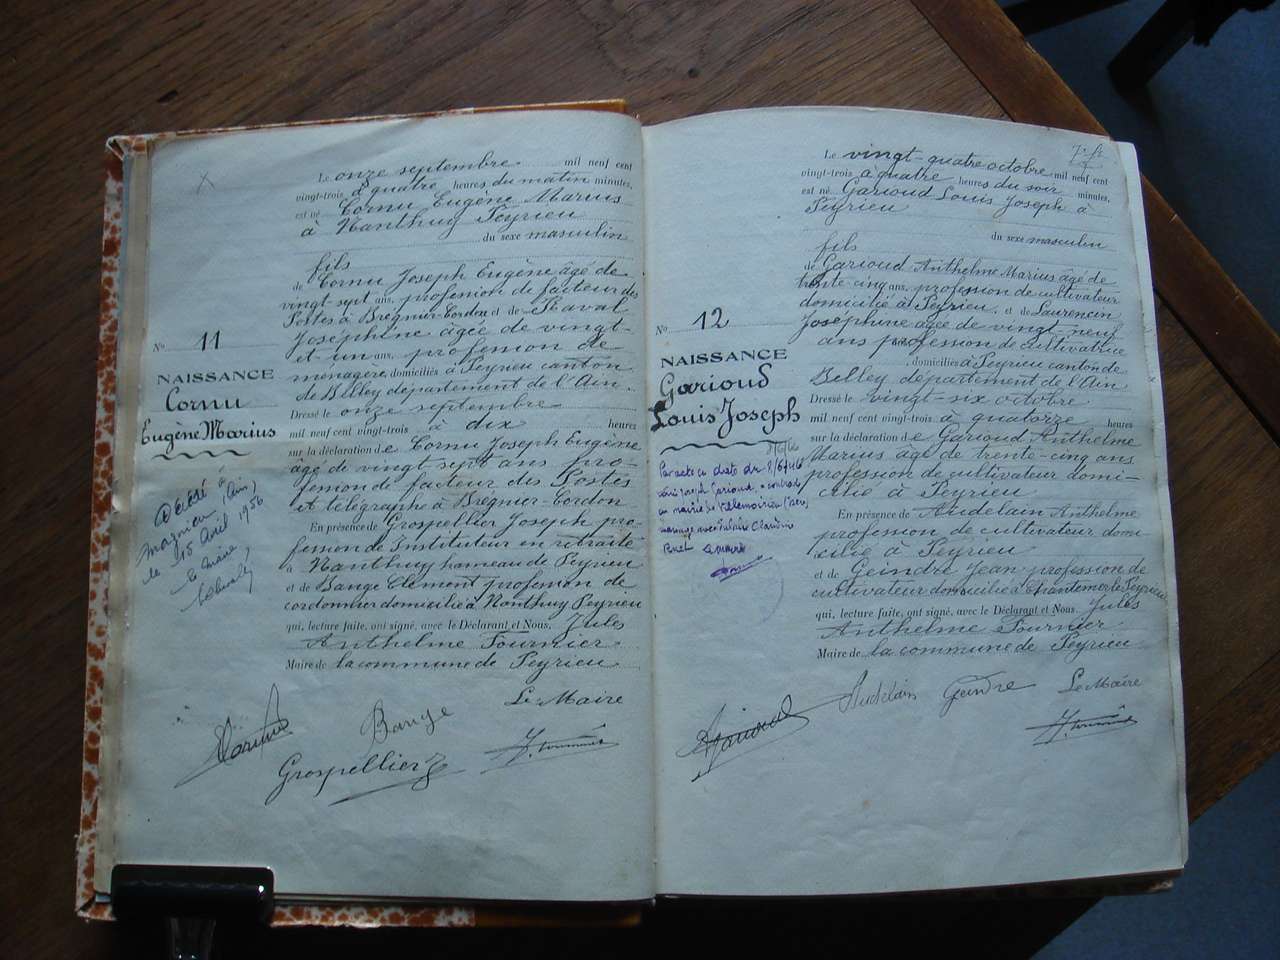 Le onze septembre mil neuf cent
vingt-trois à quatre heures du matin minutes,
est né Cornu Eugène Marius
à Nanthuy Peyrieu
du sexe masculin
fils
de Cornu Joseph Eugène âgé de
vingt sept ans, profession de facteur des
Postes à Brégnier-Cordon et de
Joséphine âgée de vingt-
et un ans, profession de
ménagère, domiciliés à Peyrieu canton
de Belley département de l'Ain.
Dressé le onze septembre
mil neuf cent vingt-trois à dix heures
sur la déclaration de Cornu Joseph Eugène
âgé de vingt sept ans pro-
fession de facteur des Postes
et télégraphe à Brégnier-Cordon
En présence de Grospellier Joseph pro-
fession de Instituteur en retraite
à Nanthuy hameau de Peyrieu
et de Bange Clément profession de
cordonnier domicilié à Nanthuy Peyrieu
qui, lecture faite, ont signé, avec le Déclarant et Nous, Jules
Anthelme Fournier
Maire de la commune de Peyrieu
Le Maire
Bange
Grospellier
J. Fournier
No 11
NAISSANCE
Cornu
Eugène Marius
Décédé à
Magnieu (Ain)
le 15 Avril 1956
le maire
7
Le vingt-quatre octobre mil neuf cent
vingt-trois à quatre heures du soir minutes,
est né Garioud Louis Joseph à
Peyrieu
du sexe masculin
fils
de Garioud Anthelme Marius âgé de
trente-cinq ans, profession de cultivateur
domicilié à Peyrieu, et de Laurencin
Joséphine âgée de vingt-neuf
ans profession de cultivatrice
domiciliés à Peyrieu canton de
Belley département de l'Ain
Dressé le vingt-six octobre
mil neuf cent vingt-trois à quatorze heures
sur la déclaration de Garioud Anthelme
Marius âgé de trente-cinq ans
profession de cultivateur domi-
cilié à Peyrieu
En présence de Audelain Anthelme
profession de cultivateur domi-
cilié à Peyrieu
et de Geindre Jean profession de
cultivateur domicilié à Chantemerle Peyrieu
qui, lecture faite, ont signé, avec le Déclarant et Nous, Jules
Anthelme Fournier
Maire de la commune de Peyrieu
Le Maire
Garioud
Audelain Geindre
J. Fournier
No 12
NAISSANCE
Garioud
Louis Joseph
Par acte en date du 8/6/46
Louis Joseph Garioud, a contracté
en mairie de Villemoirieu (Isère)
mariage avec Claudine
Le maire